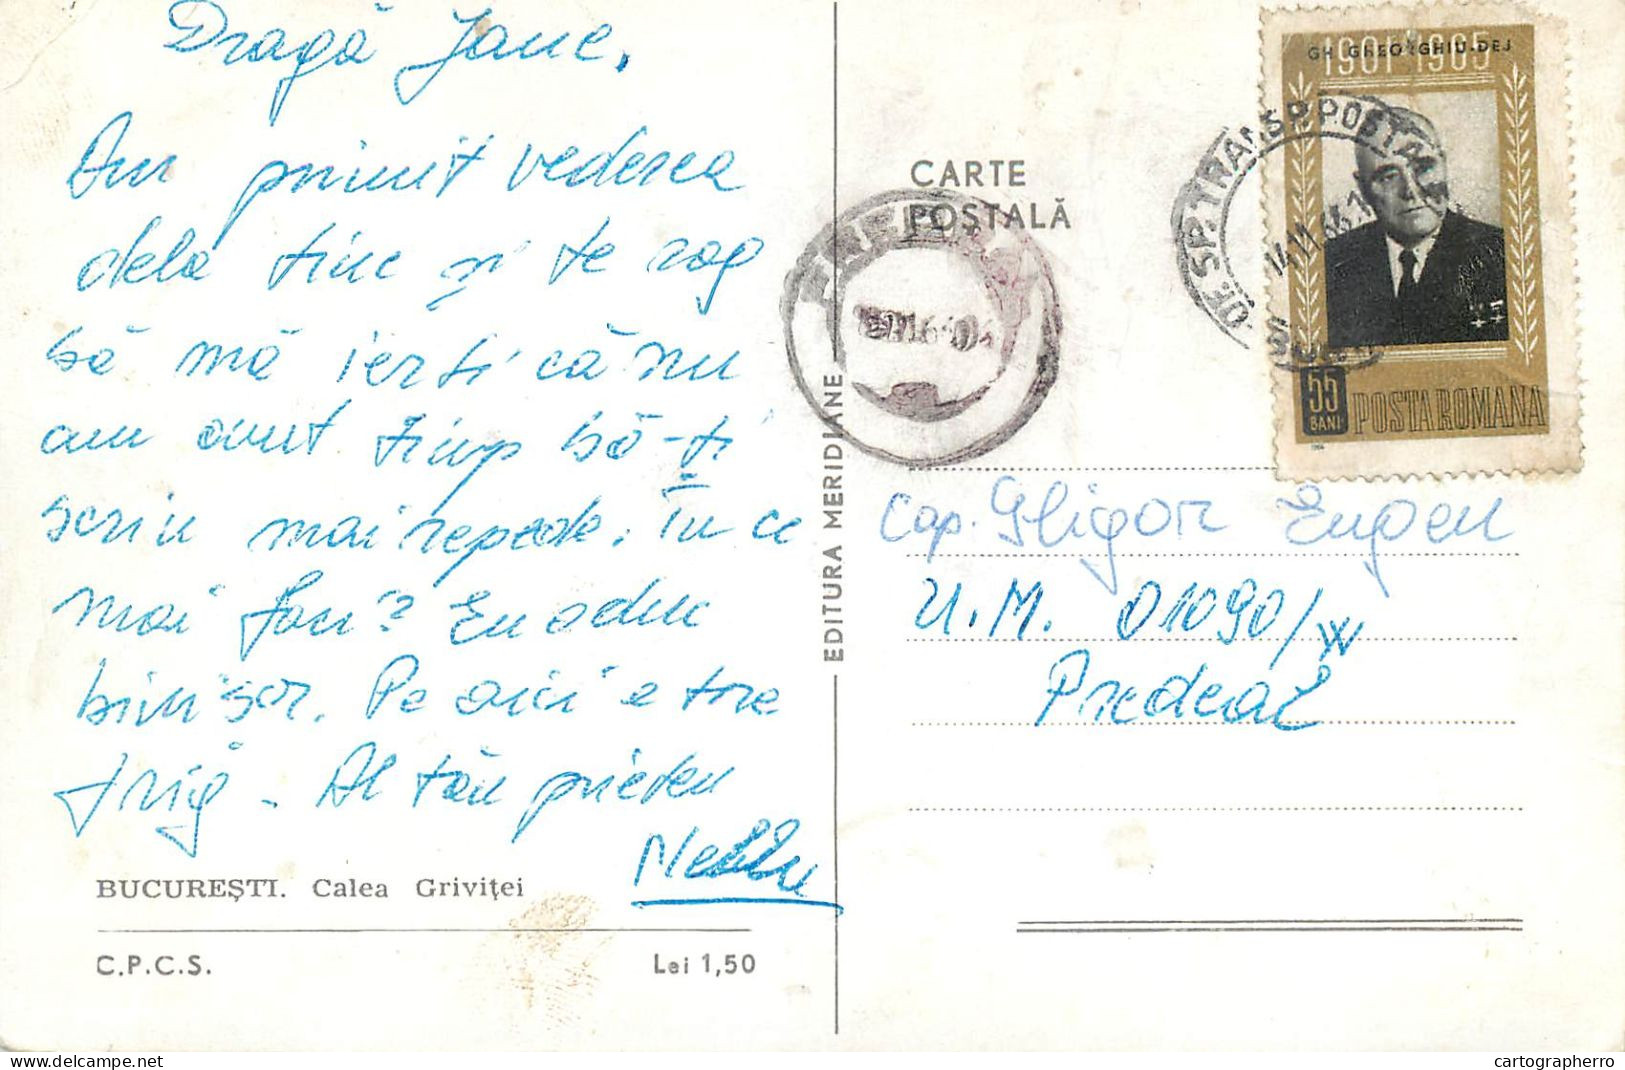 Dragă Jane,
Am primit vederea
dela tine și te rog
să mă ierți că nu
am avut timp să-ți
scriu mai repede. În ce
mai faci? Eu o duc
binișor. Pe aici e tare
frig. Al tău prieten
BUCUREȘTI. Calea Griviței
C.P.C.S.
Lei 1,50
EDITURA MERIDIANE
CARTE
POȘTALĂ
PREDEAL
GH. GHEORGHIU-DEJ
1901-1965
55
BANI
POSTA ROMANA
TRANSP. POSTAL
Cap. Gligor Eugen
U.M. 01090/W
Predeal
Delcampe.net
cartographerro